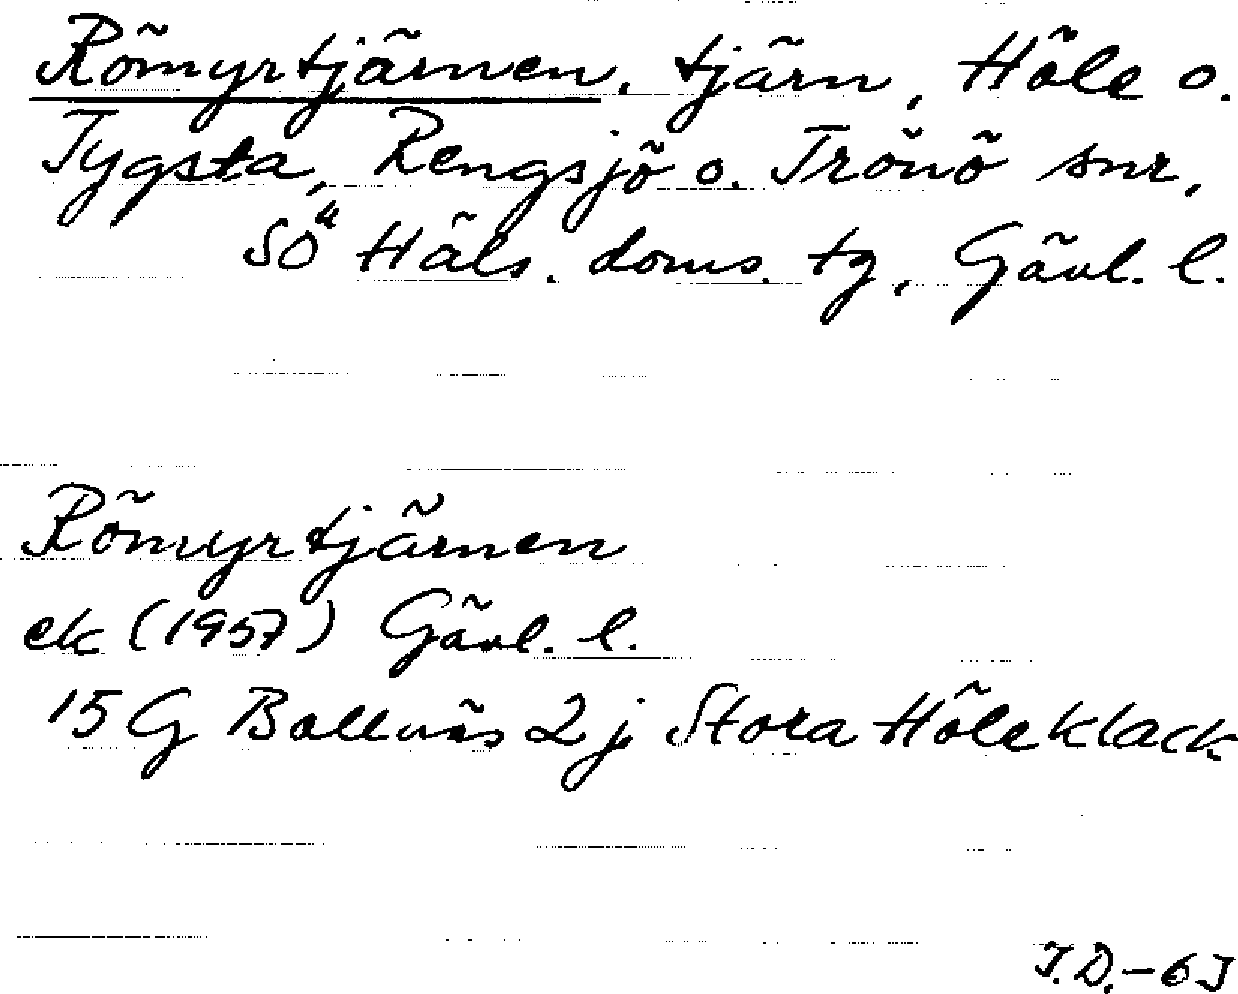 Römyrtjärnen, tjärn, Höle o.
Tygsta, Rengsjö o. Trönö snr,
SÖ Häls. doms. tg, Gävl. l.
Römyrtjärnen
ek (1957) Gävl. l.
15 G Bollnäs 2 j Stora Höleklack